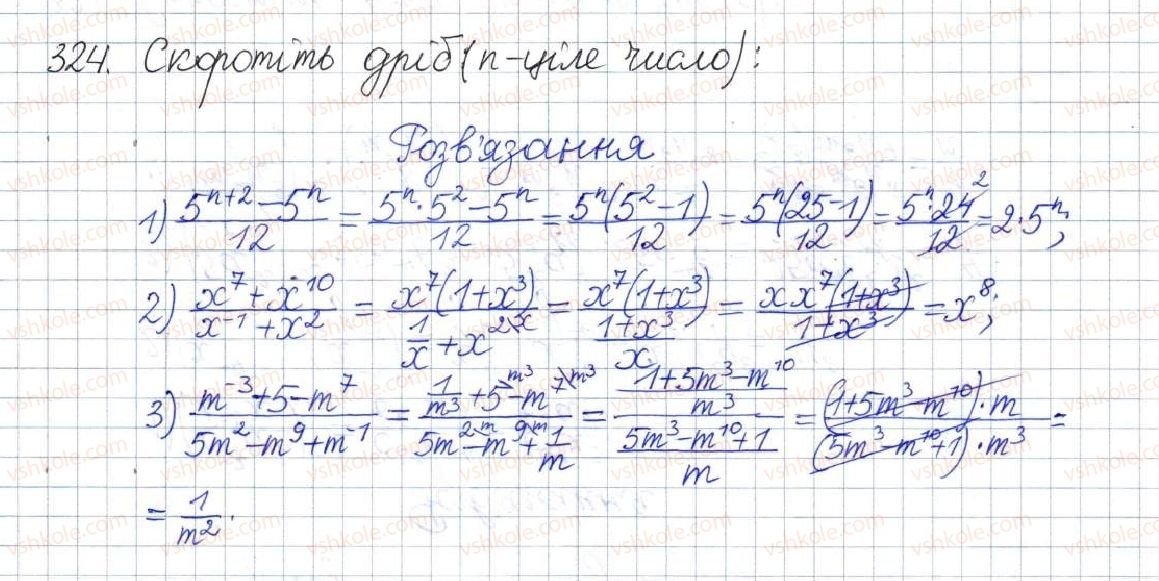 324. Скоротіть дріб (n-ціле число):
Розв'язання
1) \frac{5^{n+2}-5^n}{12} = \frac{5^n·5^2-5^n}{12} = \frac{5^n(5^2-1)}{12} = \frac{5^n(25-1)}{12} = \frac{5^n·24^2}{12} = 2·5^n;
2) \frac{x^7+x^{10}}{x^{-1}+x^2} = \frac{x^7(1+x^3)}{\frac{1}{x}+x^{2\x}} = \frac{x^7(1+x^3)}{\frac{1+x^3}{x}} = \frac{x x^7(1+x^3)}{1+x^3} = x^8;
3) \frac{m^{-3}+5-m^7}{5m^2-m^9+m^{-1}} = \frac{\frac{1}{m^3}+5^{\m^3}-m^{7\m^3}}{5m^{2\m}-m^{9\m}+\frac{1}{m}} = \frac{\frac{1+5m^3-m^{10}}{m^3}}{\frac{5m^3-m^{10}+1}{m}} = \frac{(1+5m^3-m^{10})·m}{(5m^3-m^{10}+1)·m^3} =
= \frac{1}{m^2}.
vshkole.com